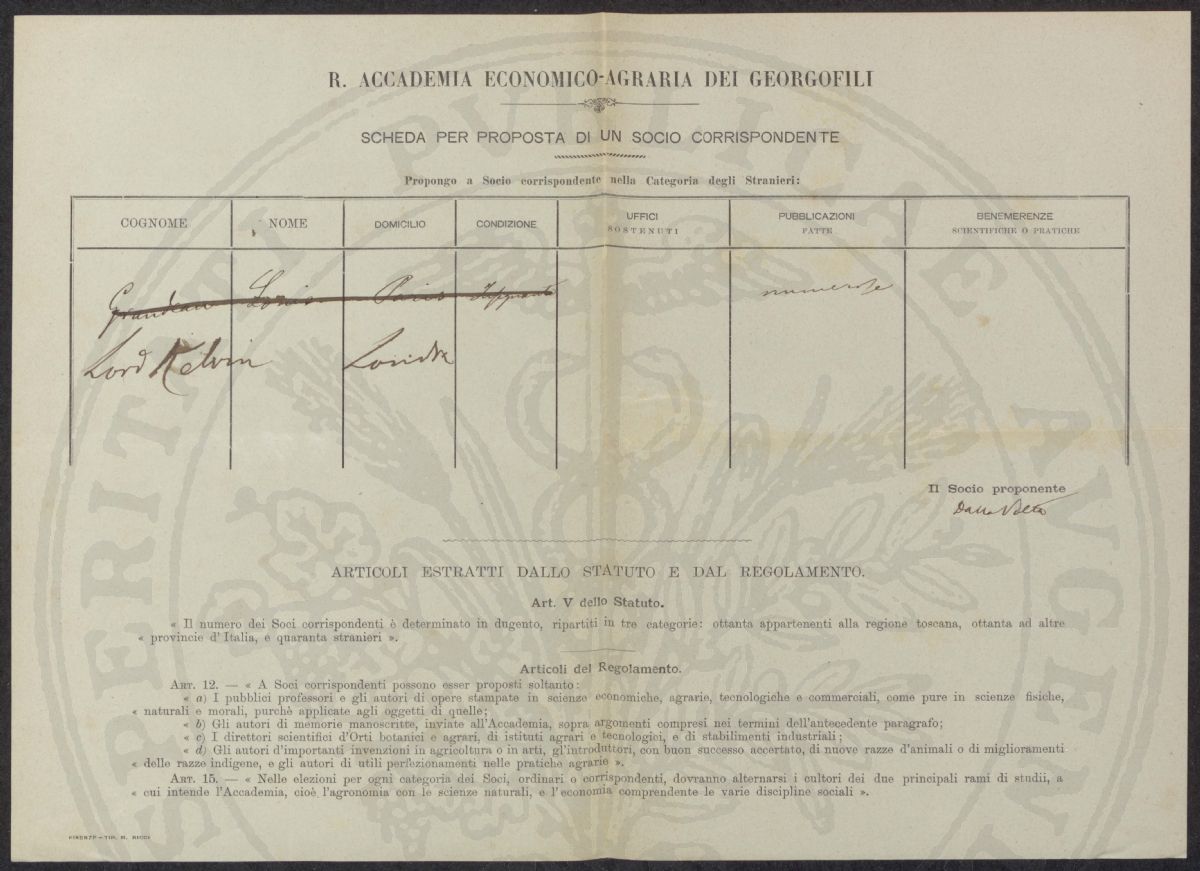 R. ACCADEMIA ECONOMICO-AGRARIA DEI GEORGOFILI
SCHEDA PER PROPOSTA DI UN SOCIO CORRISPONDENTE
Propongo a Socio corrispondente nella Categoria degli Stranieri:
COGNOME NOME DOMICILIO CONDIZIONE UFFICI SOSTENUTI PUBBLICAZIONI FATTE BENEMERENZE SCIENTIFICHE O PRATICHE
Grandeau Louis numerose
Lord Kelvin Londra
Il Socio proponente
Dalla Volta
ARTICOLI ESTRATTI DALLO STATUTO E DAL REGOLAMENTO.
Art. V dello Statuto.
« Il numero dei Soci corrispondenti è determinato in dugento, ripartiti in tre categorie: ottanta appartenenti alla regione toscana, ottanta ad altre
« provincie d'Italia, e quaranta stranieri ».
Articoli del Regolamento.
ART. 12. — « A Soci corrispondenti possono esser proposti soltanto:
« a) I pubblici professori e gli autori di opere stampate in scienze economiche, agrarie, tecnologiche e commerciali, come pure in scienze fisiche,
« naturali e morali, purchè applicate agli oggetti di quelle;
« b) Gli autori di memorie manoscritte, inviate all'Accademia, sopra argomenti compresi nei termini dell'antecedente paragrafo;
« c) I direttori scientifici d'Orti botanici e agrari, di istituti agrari e tecnologici, e di stabilimenti industriali;
« d) Gli autori d'importanti invenzioni in agricoltura o in arti, gl'introduttori, con buon successo accertato, di nuove razze d'animali o di miglioramenti
« delle razze indigene, e gli autori di utili perfezionamenti nelle pratiche agrarie ».
ART. 15. — « Nelle elezioni per ogni categoria dei Soci, ordinari o corrispondenti, dovranno alternarsi i cultori dei due principali rami di studii, a
« cui intende l'Accademia, cioè l'agronomia con le scienze naturali, e l'economia comprendente le varie discipline sociali ».
FIRENZE – TIP. M. RICCI